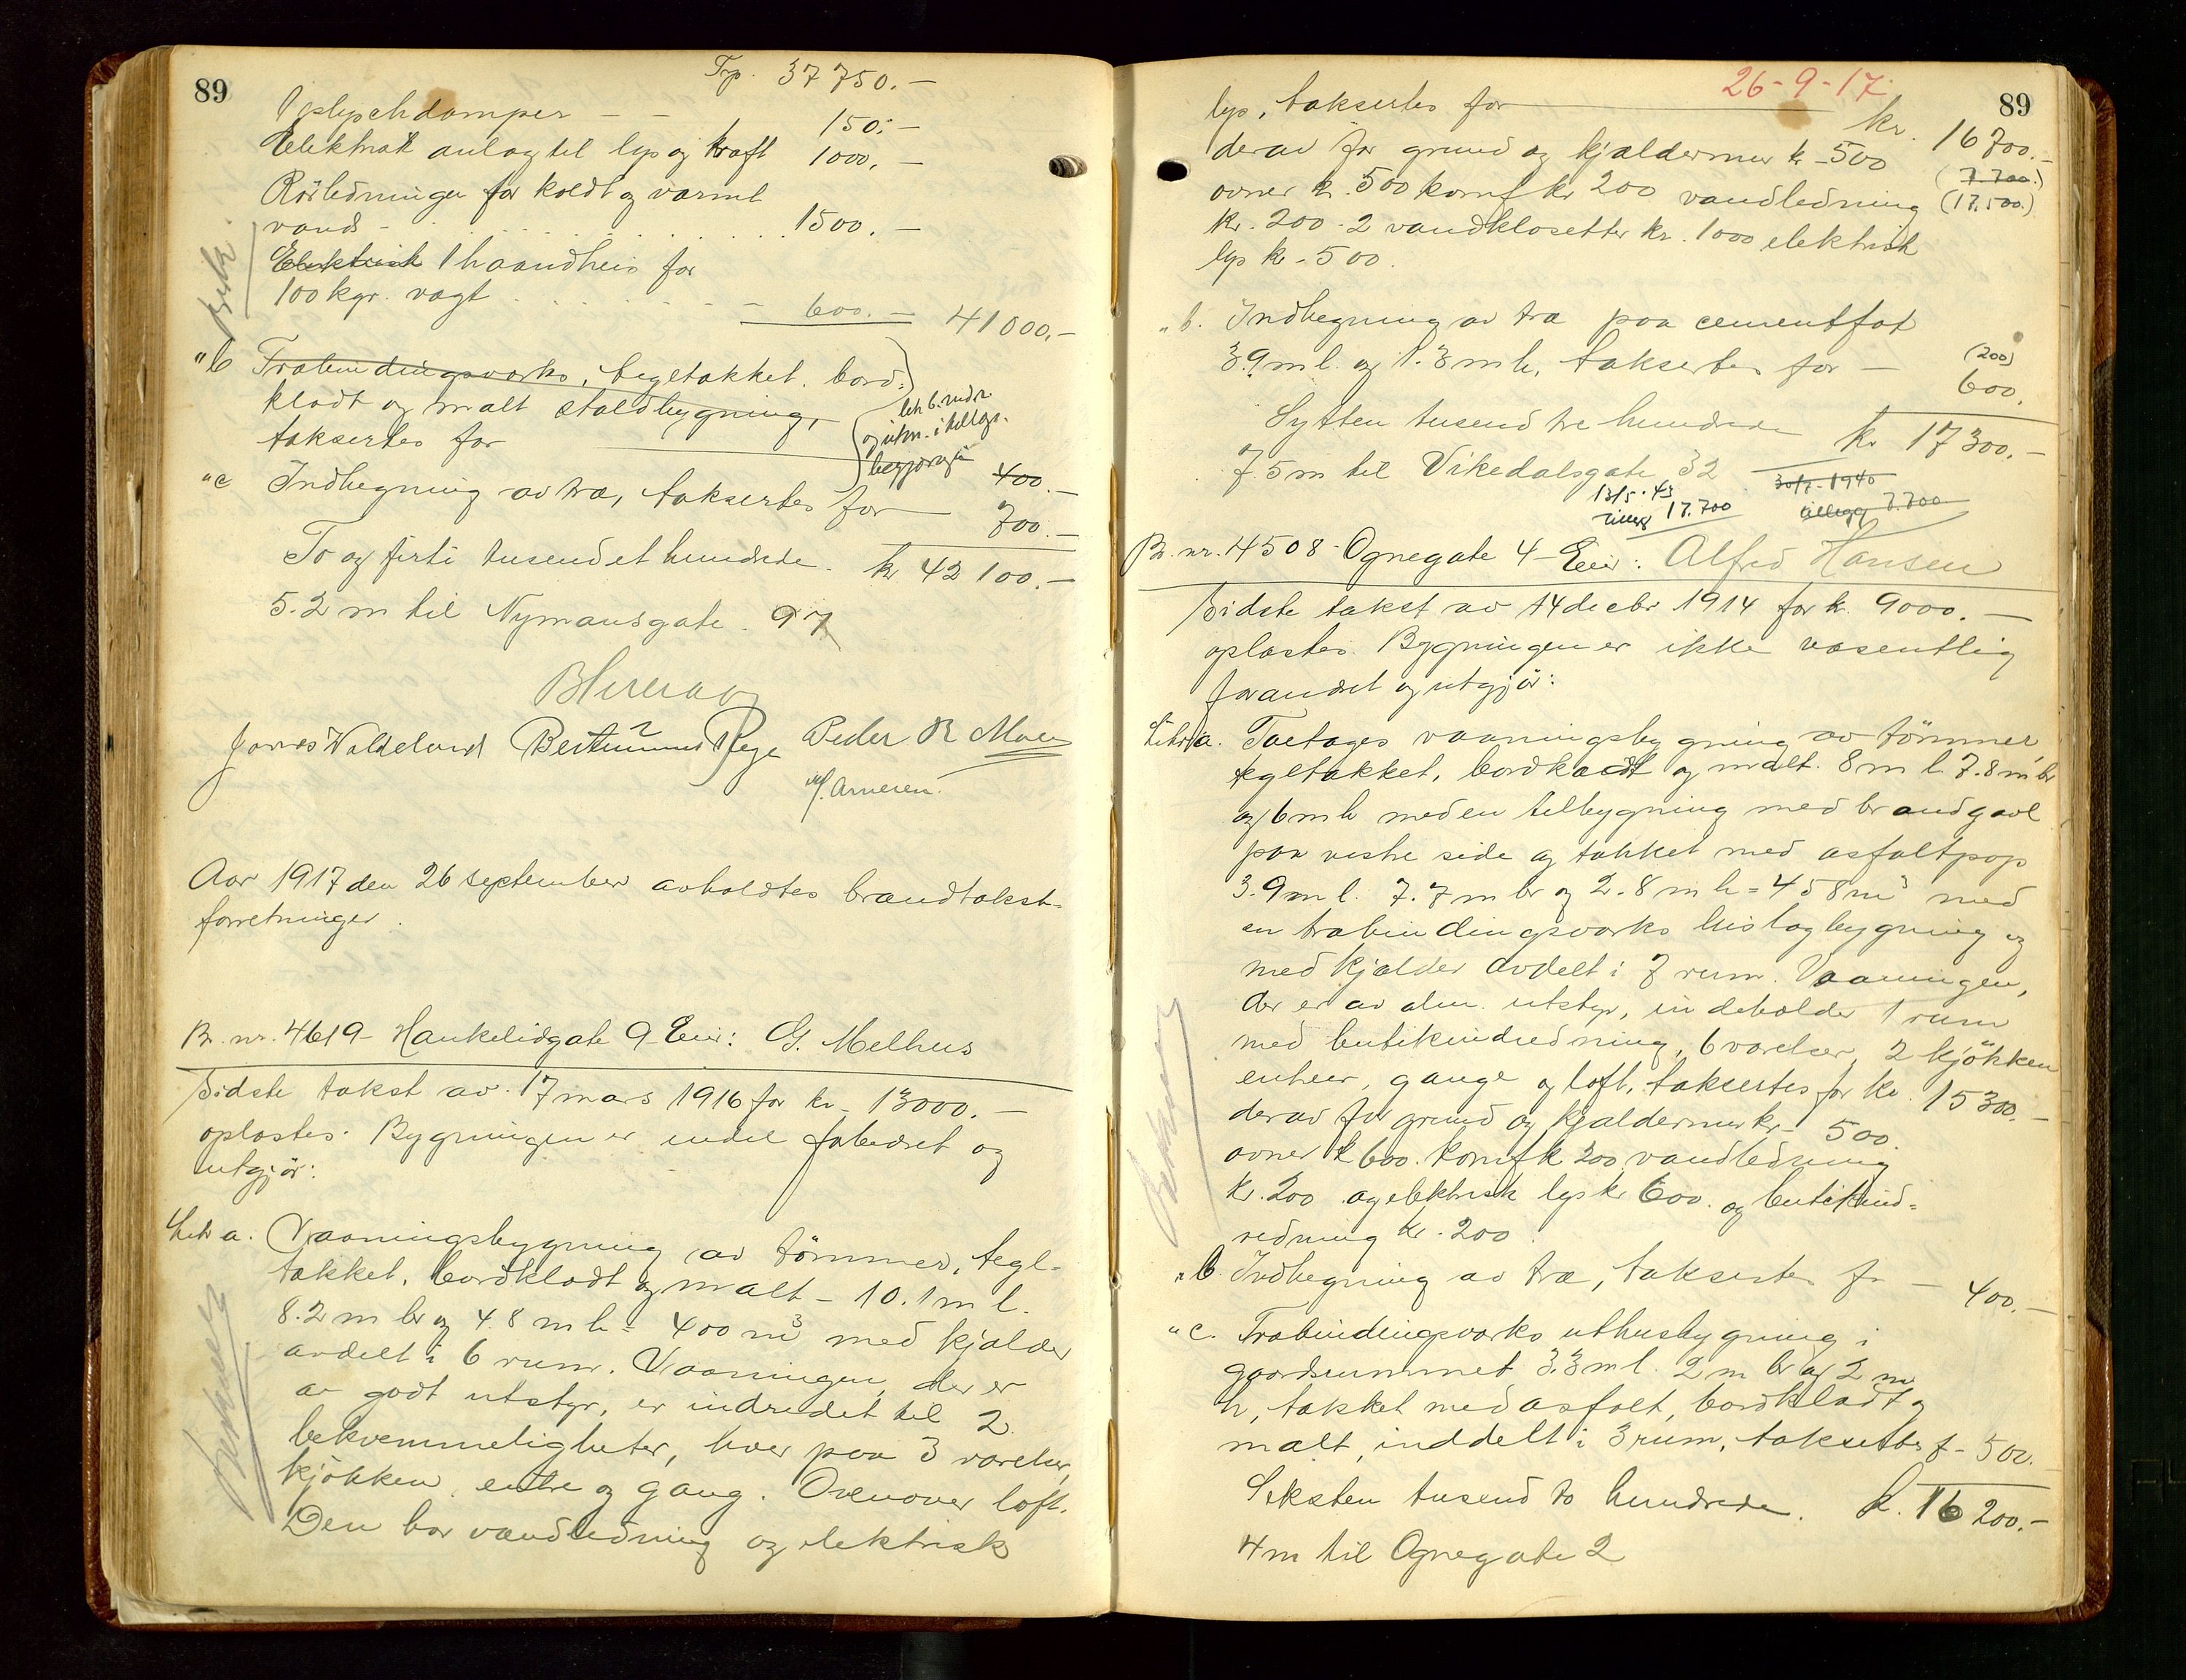 89
Trp. 37 750.-
Oplysekdamper - - 150.-
Elektrisk anlæg til lys og kraft 1000.-
Rörledninger for koldt og varmt
vand - 1500.-
Elektrisk 1 haandheis for
100 kgr. vægt 600.- 41000.-
"b Træbindingsverks, teglækket, bord-
klædt og malt staldbygning,
taksertes for 400.-
"c Indhegning av træ, taksertes for 700.-
To og firti tusend et hundrede. kr 42 100.-
5.2 m til Nymansgate 97
Peder R Moen
Aar 1917 den 26 september avholdtes brandtakst-
forretninger.
Br. nr. 4619 - Haukelidgate 9 Eier: G. Melhus
Sidste takst av 17 mars 1916 for kr. 13000.-
oplæstes. Bygningen er endel forbedret og
utgjör:
Litr a. Vaaningsbygning av tömmer, tegl-
tækket, bordklædt og malt - 10.1 m l.
8.2 m br og 4.8 m h = 400 m³ med kjælder
avdelt i 6 rum. Vaaningen, der er
av godt utstyr, er indredet til 2
bekvemmeligheter, hver paa 3 værelser,
kjökken, entre og gang. Ovenover loft.
Den har vandledning og elektrisk
26-9-17
89
lys, taksertes for kr. 16 700.-
derav for grund og kjældermur kr - 500
(7.700.)
ovner kr. 500 komf kr 200 vandledning
(17.500.)
kr. 200 - 2 vandklosetter kr. 1000 elektrisk
lys kr - 500.
"b. Indhegning av træ paa cementfot
(200)
39 m l. og 1.3 m h, taksertes for - 600.
Sytten tusend tre hundrede kr 17 300.-
og 7.5 m til Vikedalsgate 32
13/5-43
17.700
30/7-1940
tillegg 7.700
Br. nr. 4508 - Ognegate 4 - Eier: Alfred Hansen
Sidste takst av 14 decbr 1914 for kr. 9000.-
oplæstes. Bygningen er ikke væsentlig
forandret og utgjör:
Litr a. Toetages vaaningsbygning av tömmer
tegltækket, bordklædt og malt. 8 m l. 7.8 m br
og 6 m h med en tilbygning med brandgavl
paa vestre side og tækket med asfaltpap
3.9 m l. 7.7 m br og 2.8 m h = 458 m³ med
en træbindingsverks bislagbygning og
med kjælder avdelt i 7 rum. Vaaningen,
der er av alm. utstyr, indeholder 1 rum
med butikindredning, 6 værelser, 2 kjökken
entreer, gange og loft, taksertes for kr. 15 300.-
derav for grund og kjældermur kr - 500.
ovner kr 600. komf kr 200 vandledning
kr. 200 og elektrisk lys kr 600. og butikind-
redning kr. 200.
"b. Indhegning av træ, taksertes fr - 400.-
"c. Træbindingsverks uthusbygning i
gaardsrummet 3.3 m l. 2 m br og 2 m
h, tækket med asfalt, bordklædt og
malt, inddelt i 3 rum, taksertes f - 500.
Seksten tusend to hundrede. kr. 16 200.-
4 m til Ognegate 2